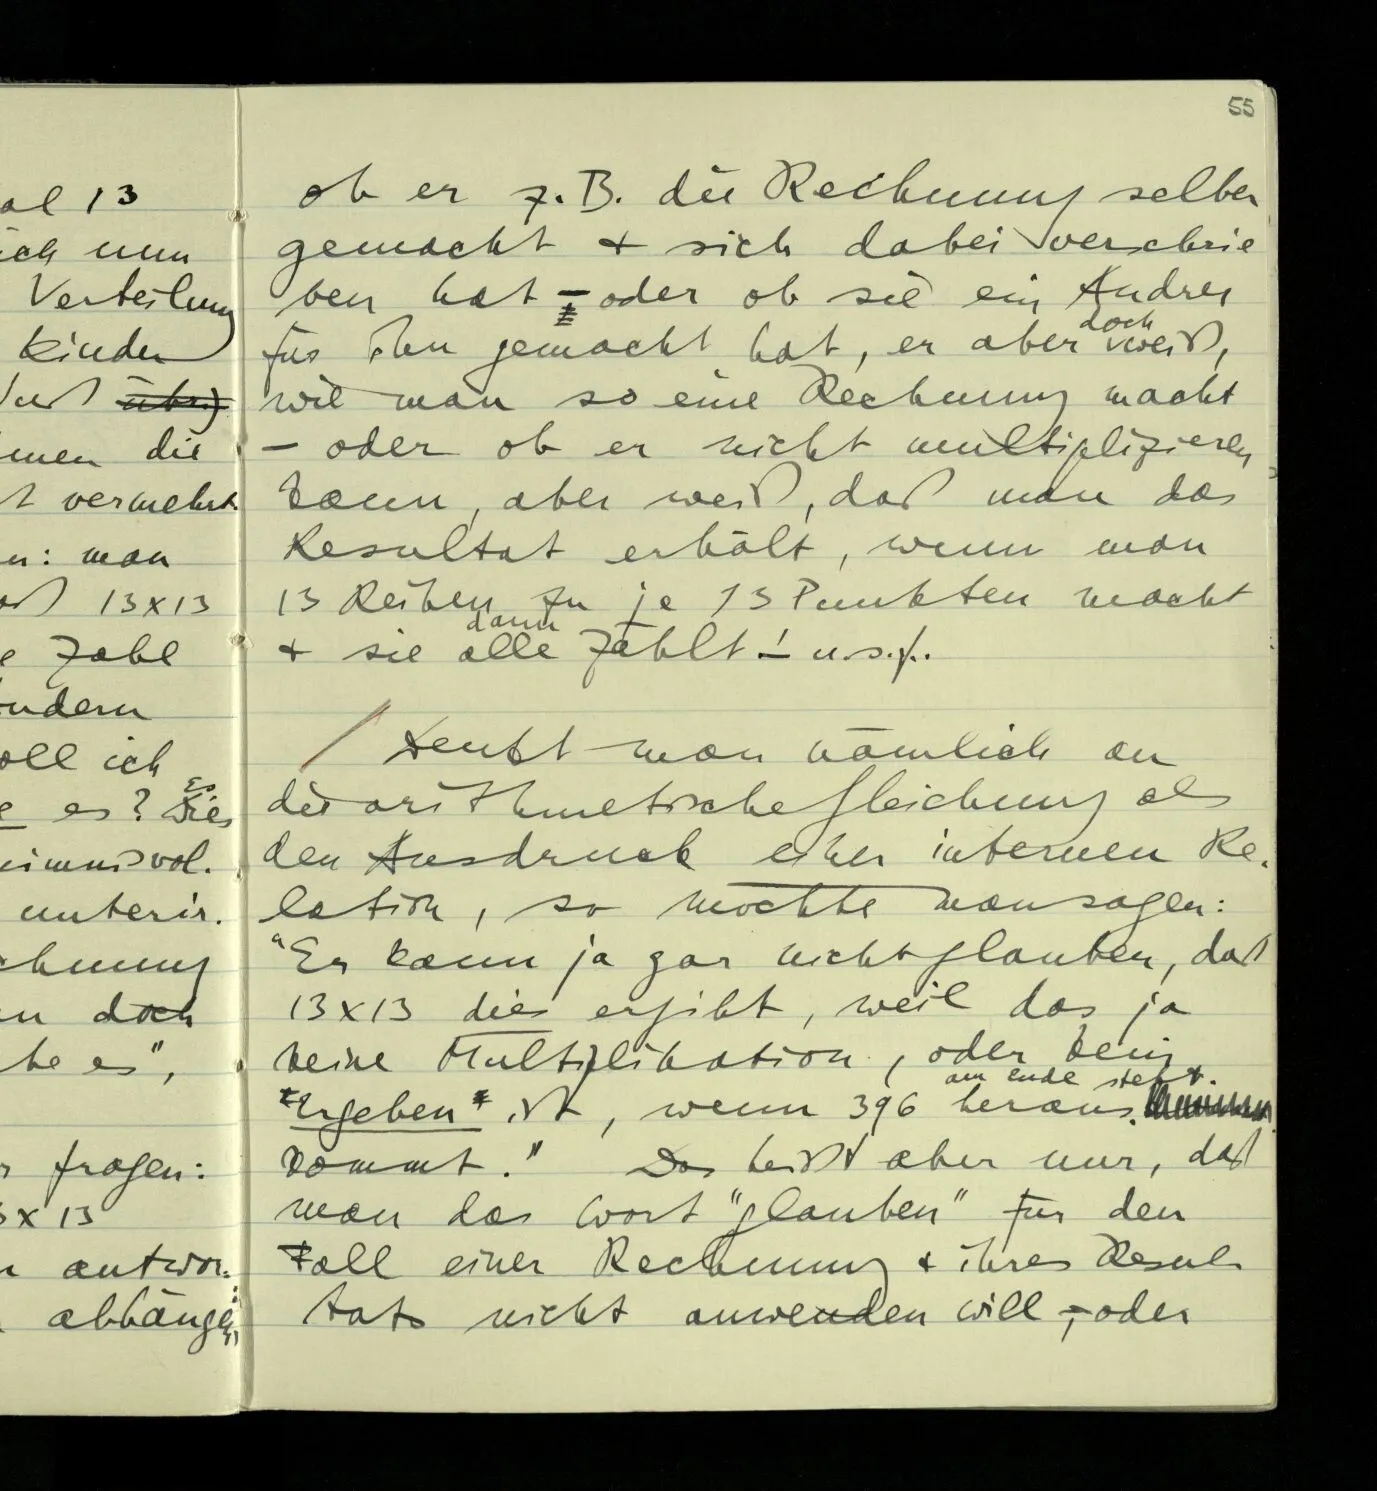 al 13
ich nun
Verteilung
Kinder
men die
vermehrt
n: man
13x13
Zahl
ondern
oll ich
e es? Es Dies
eimnisvol.
unterir.
chnung
n doch
he es",
fragen:
x 13
antwor.
abhängen:
55
ob er z.B. die Rechnung selber
gemacht + sich dabei verschrie
ben hat – oder ob sie ein Andrer
für ihn gemacht hat, er aber doch weiß,
wie man so eine Rechnung macht
– oder ob er nicht multiplizieren
kann, aber weiß, daß man das
Resultat erhält, wenn man
13 Reihen zu je 13 Punkten macht
+ sie dann alle zählt! u.s.f..
/ Denkt man nämlich an
die arithmetische Gleichung als
den Ausdruck einer internen Re.
lation, so möchte man sagen:
"Er kann ja gar nicht glauben, daß
13x13 dies ergibt, weil das ja
keine Multiplikation, oder kein
am Ende steht.
"Ergeben" ist, wenn 396 heraus.
kommt." Das heißt aber nur, daß
man das Wort "glauben" für den
Fall einer Rechnung + ihres Resul-
tats nicht anwenden will, – oder